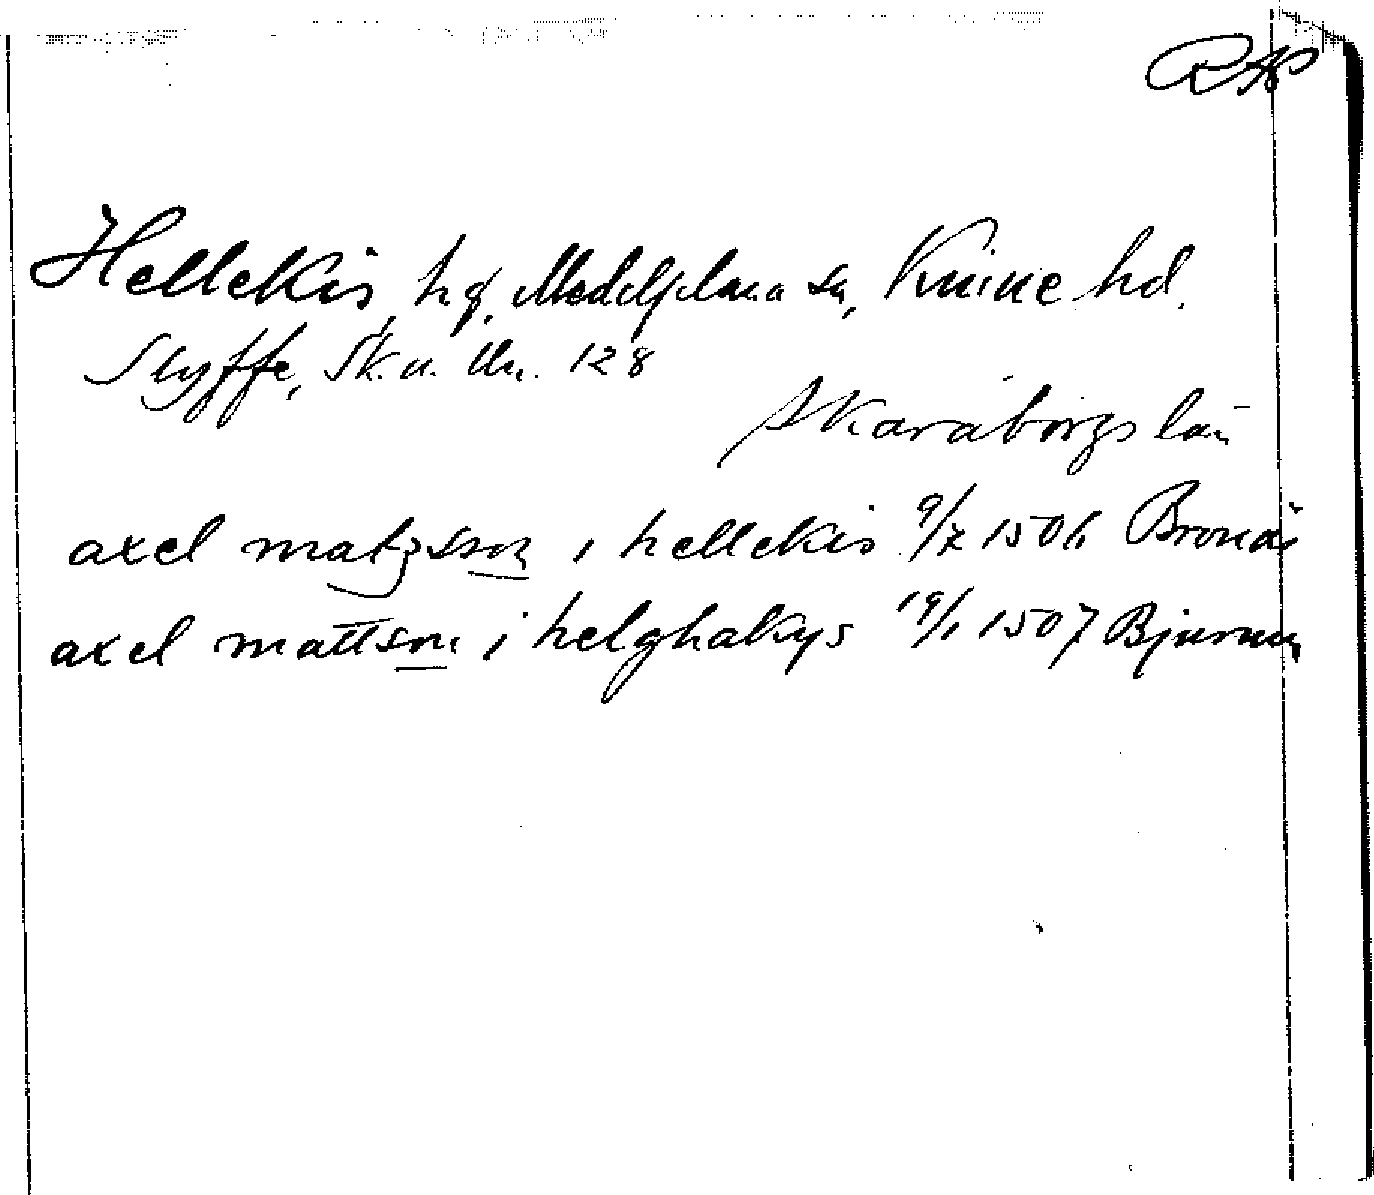 RAP
Hellekis, hg, Medelplana sn, Kinne hd.
Styffe, Sk. u. Un. 128
Skaraborgs län
axel matzsson i hellekis 9/7 1506
axel mattson i helghakys 19/1 1507 Bjurum